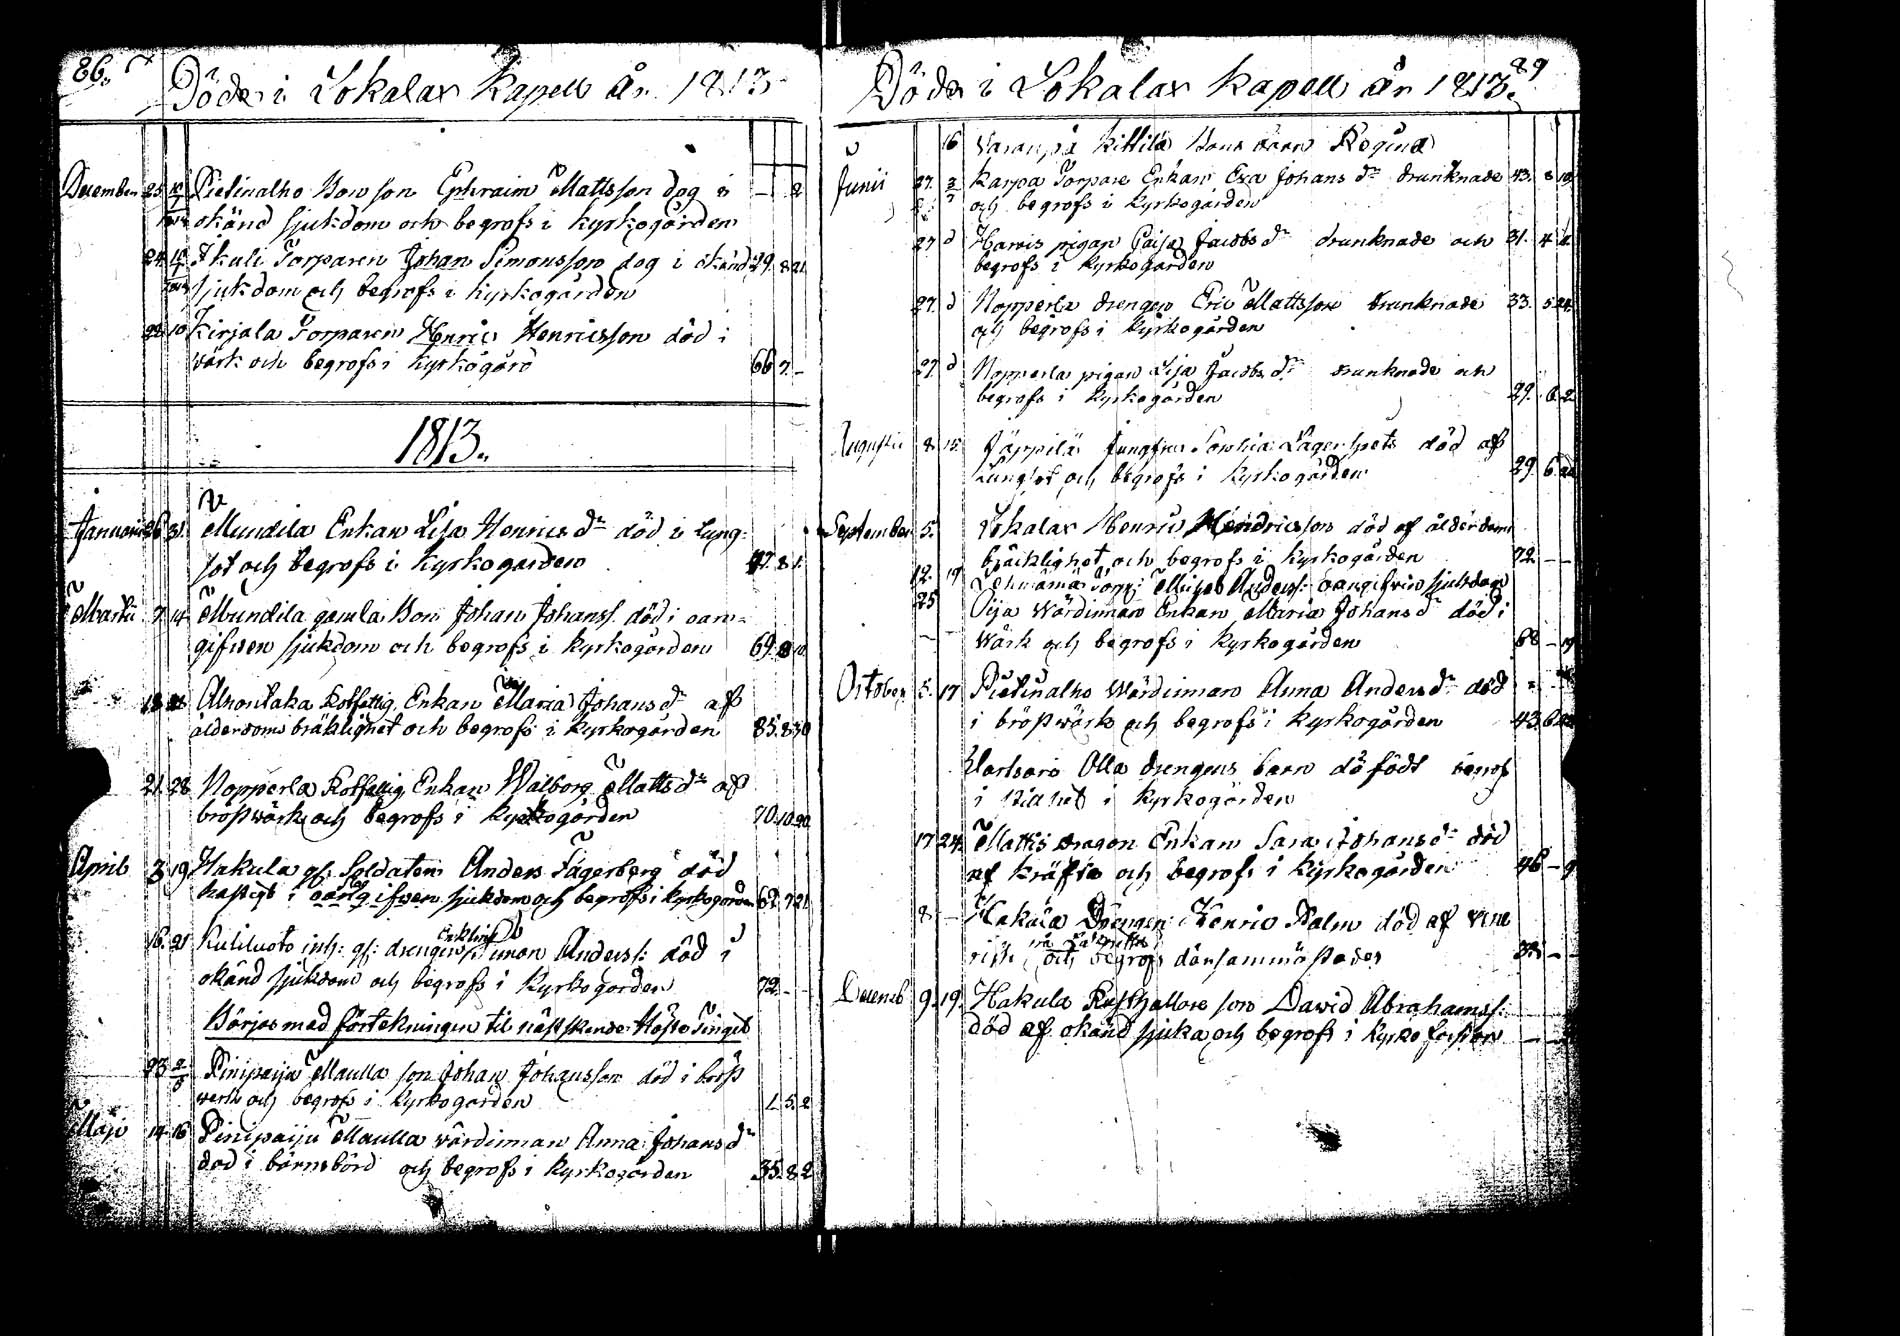 86.
Döde i Lokalax Kapell År 1813
December 25. Pietinalho Bonson Ephraim Mattsson dog i - - 2
okänd sjukdom och begrofs i kyrkogården
24. Torparen Johan Simonsson dog i okänd 29. 8 21
sjukdom och begrofs i kyrkogården
28 10 Kirjala Torparen Henric Henricsson död i
värk och begrofs i Kyrkogård 66 7. -
1813.
Januarii 26 31. Mundila Enkan Lisa Henrics dr död i Lung-
sot och begrofs i kyrkogården 47. 8 1.
Martii 7 14 Mundila gamla Bon Johan Johanss. död i oan-
gifwen sjukdom och begrofs i kyrkogården 69. 8 10
Rotfattig Enkan Maria Johans dr af
ålderdoms bräklighet och begrofs i kyrkogården 85. 8 30
21. 28 Nopperla Rotfattig Enkan Walborg Matts dr af
bröstwärk och begrofs i kyrkogården 70. 10. 20
April 3 19 Hakula gf: Soldaten Anders Fägerberg död
hastigt i oangifwen sjukdom och begrofs i kyrkogården 62. 7 21
Enkling
16. 21 Kuliluoto inh: gf: drengen Simon Anderss: död i
okänd sjukdom och begrofs i Kyrkogården 72. - -
Börjas med förtekningen til nästskende Höste Tinget
23 2/5 Pinipaiju Maulla son Johan Johansson död i bröst
werk och begrofs i Kyrkogården 1. 5. 2
Maji 14 16 Pinipaiju Maulla wärdinnan Anna Johans dr
död i barnsbörd och begrofs i kyrkogården 35. 8 2
89
Döde i Lokalax Kapell år 1813.
16 Kittilä Bons barn Regina
Junii 27. Karjoa Torpare Enkan Eva Johans dr drunknade 43. 8 19
och begrofs i Kyrkogården
27 d Harvis pigan Caisa Jacobs dr drunknade och 31. 4
begrofs i Kyrkogården
27. d Nopperla drengen Eric Mattsson drunknade 33. 5 24.
och begrofs i Kyrkogården
27. d Nopperla pigan Lisa Jacobs dr drunknade och
begrofs i Kyrkogården 29. 6 2
Augusti 8. 15. Jäppilä Jungfru Sophia Lagerspets död af
Lungsot och begrofs i Kyrkogården 29. 6
September 5. Lokalax Henric Hendricsson död af ålderdoms
bräcklighet och begrofs i Kyrkogården 72. - -
12. 19 Michel Anderss: oangifwen sjukdom
25 Wärdinnan Enkan Maria Johans dr död i
Wärk och begrofs i Kyrkogården 68 - 19
October 5. 17 Pietinalho Wärdinnan Anna Anders dr död
i bröstwärk och begrofs i Kyrkogården 43. 6
Olla drengens barn dödfödt begrof
i stilhet i Kyrkogården
17 24. Mattis dragon Enkan Sara Johans dr död
af kräfta och begrofs i Kyrkogården 46 - 9
8. - Hakula Drengen Henric Palm död af vene
risk och begrofs därsammastädes - -
Decemb 9. 19. Hakula Rusthållare son David Abrahamss:
död af okänd sjuka och begrofs i